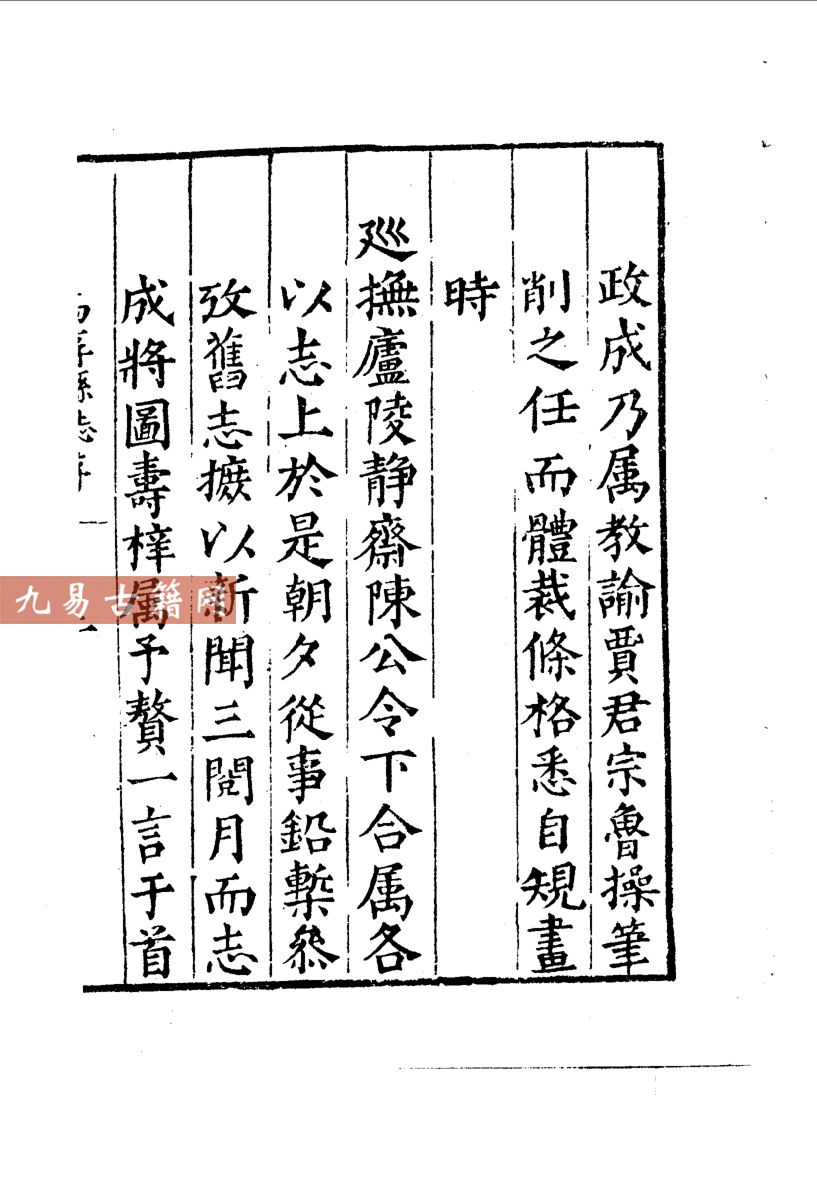 政成乃属教諭賈君宗魯操筆
削之任而體裁條格悉自規畫
時
廵撫廬陵静齋陳公令下合属各
以志上於是朝夕從事鉛槧叅
攷舊志摭以新聞三閱月而志
成將圖壽梓属予贅一言于首
縣志
九易古籍网